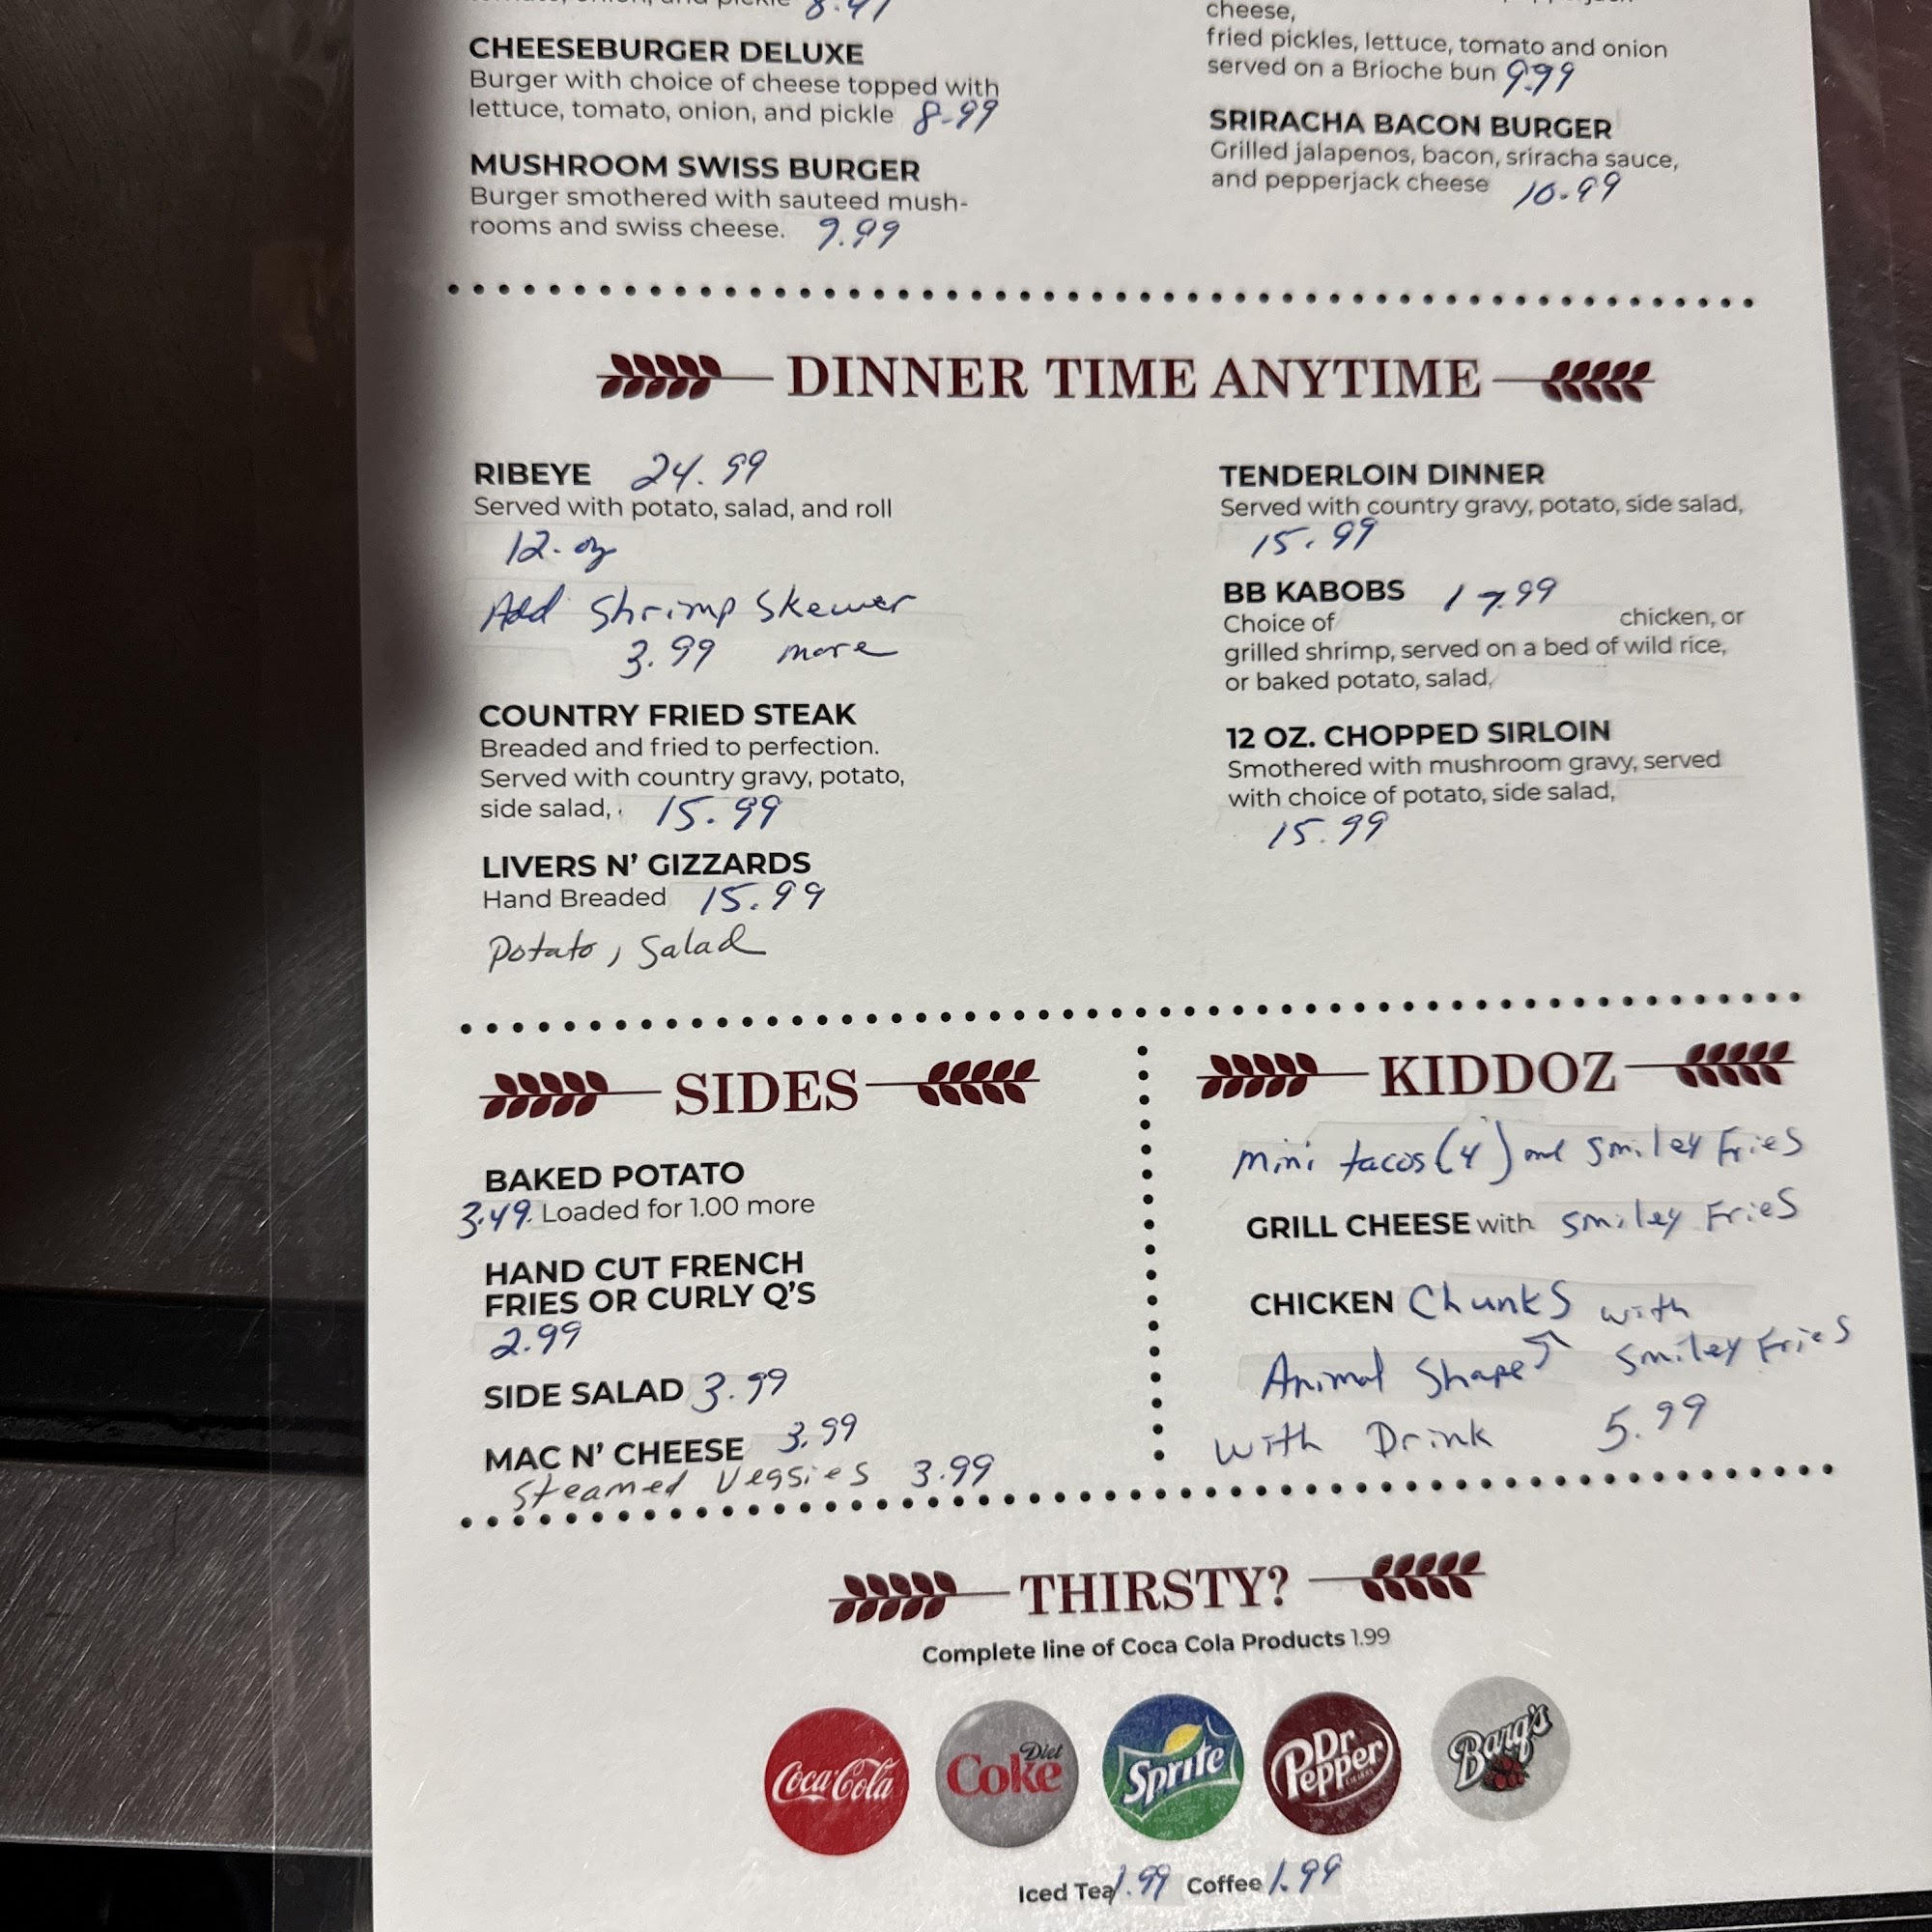 cheese,
fried pickles, lettuce, tomato and onion
served on a Brioche bun 9.99
CHEESEBURGER DELUXE
Burger with choice of cheese topped with
lettuce, tomato, onion, and pickle 8.99
MUSHROOM SWISS BURGER
Burger smothered with sauteed mush-
rooms and swiss cheese. 9.99
SRIRACHA BACON BURGER
Grilled jalapenos, bacon, sriracha sauce,
and pepperjack cheese 10.99
DINNER TIME ANYTIME
RIBEYE 24.99
Served with potato, salad, and roll
12. oz
Add Shrimp Skewer
3.99 more
COUNTRY FRIED STEAK
Breaded and fried to perfection.
Served with country gravy, potato,
side salad, 15.99
LIVERS N' GIZZARDS
Hand Breaded 15.99
Potato, Salad
TENDERLOIN DINNER
Served with country gravy, potato, side salad,
15.99
BB KABOBS 17.99
Choice of chicken, or
grilled shrimp, served on a bed of wild rice,
or baked potato, salad,
12 OZ. CHOPPED SIRLOIN
Smothered with mushroom gravy, served
with choice of potato, side salad,
15.99
SIDES
BAKED POTATO
3.49. Loaded for 1.00 more
HAND CUT FRENCH
FRIES OR CURLY Q'S
2.99
SIDE SALAD 3.99
MAC N' CHEESE 3.99
Steamed Veggies 3.99
KIDDOZ
mini tacos (4) and Smiley Fries
GRILL CHEESE with Smiley Fries
CHICKEN Chunks with
Animal Shape Smiley Fries
with Drink 5.99
THIRSTY?
Complete line of Coca Cola Products 1.99
Coca-Cola
Diet
Coke
Sprite
Dr
Pepper
Barq's
Iced Tea 1.99 Coffee 1.99